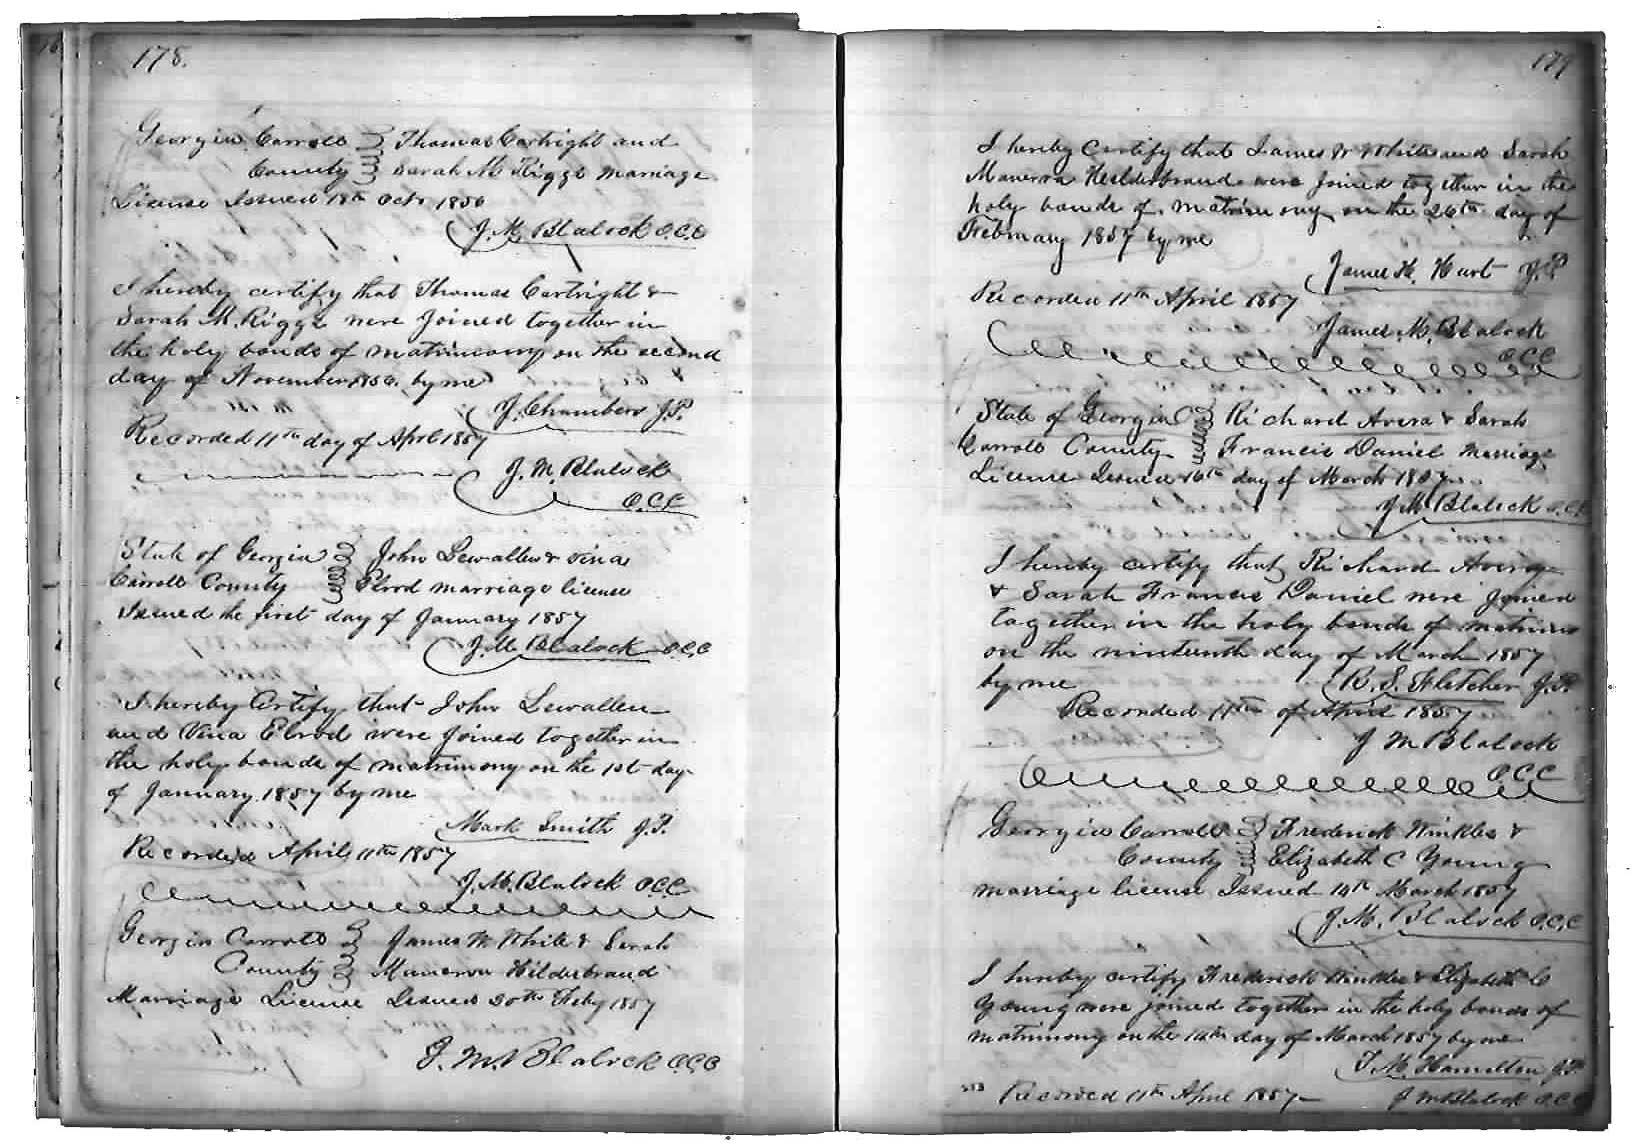 178.
Georgia Carroll Thomas Cartright and
County Sarah M Riggs marriage
License Issued 18th Octr 1856
J. M. Blalock C.C.O
I hereby certify that Thomas Cartright &
Sarah M. Riggs were Joined together in
the holy bonds of matrimony on the second
day of November 1856. by me
J. Chambers J.P.
Recorded 11th day of April 1857
J. M. Blalock
C.C.O
State of Georgia John Lewallen & Vina
Carroll County Elrod marriage license
Issued the first day of January 1857
J. M. Blalock C.C.O
I hereby Certify that John Lewallen
and Vina Elrod were Joined together in
the holy bonds of matrimony on the 1st day
of January 1857 by me
Mark Smith J.P.
Recorded April 11th 1857
J. M. Blalock O.C.C
Georgia Carroll James W White & Sarah
County Manerva Hilderbrand
Marriage License Issued 20th Feby 1857
J. M. Blalock C.C.O
179
I hereby Certify that James W White and Sarah
Manerva Heilderbrand were Joined together in the
holy bonds of matrimony on the 26th day of
February 1857 by me
James H. Hart J.P.
Recorded 11th April 1857
James. M. Blalock
O.C.C
State of Georgia Richard Avera & Sarah
Carroll County Francis Daniel marriage
License Issued 16th day of March 1857
J M Blalock O.C.C
I hereby certify that Richard Avery
& Sarah Francis Daniel were Joined
together in the holy bonds of
on the nineteenth day of March 1857
by me R. S. Fletcher J.P.
Recorded 11th of April 1857
J M Blalock
O.C.C
Georgia Carroll Frederick Winkles &
County Elizabeth C Young
marriage license Issued 14th March 1857
J. M. Blalock O.C.C
I hereby certify Frederick Winkles & Elizabeth C
Young were joined together in the holy bonds of
matrimony on the day of March 1857 by me
T. M. Hamilton J.P.
Recorded 11th April 1857 J M Blalock O.C.C